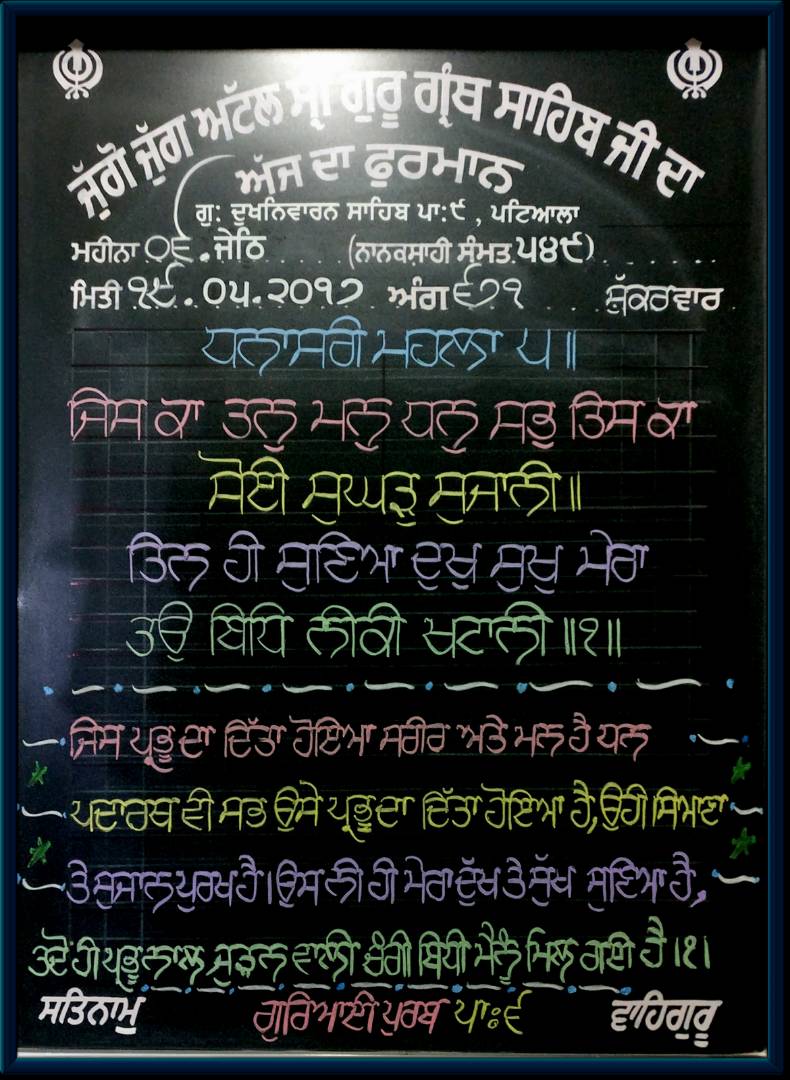 ਜੁੱਗੋ ਜੁੱਗ ਅਟੱਲ ਸ੍ਰੀ ਗੁਰੂ ਗ੍ਰੰਥ ਸਾਹਿਬ ਜੀ ਦਾ
ਅੱਜ ਦਾ ਫੁਰਮਾਨ
ਗੁ: ਦੁਖਨਿਵਾਰਨ ਸਾਹਿਬ ਪਾ:੯ , ਪਟਿਆਲਾ
ਮਹੀਨਾ ੦੬.ਜੇਠਿ (ਨਾਨਕਸ਼ਾਹੀ ਸੰਮਤ ੫੪੯)
ਮਿਤੀ ੧੯.੦੫.੨੦੧੭ ਅੰਗ ੬੭੧ ਸ਼ੁੱਕਰਵਾਰ
ਧਨਾਸਰੀ ਮਹਲਾ ੫॥
ਜਿਸ ਕਾ ਤਨੁ ਮਨੁ ਧਨੁ ਸਭੁ ਤਿਸ ਕਾ
ਸੋਈ ਸੁਘੜੁ ਸੁਜਾਨੀ॥
ਤਿਨ ਹੀ ਸੁਣਿਆ ਦੁਖੁ ਸੁਖੁ ਮੇਰਾ
ਤਉ ਬਿਧਿ ਨੀਕੀ ਖਟਾਨੀ॥੧॥
ਜਿਸ ਪ੍ਰਭੂ ਦਾ ਦਿੱਤਾ ਹੋਇਆ ਸਰੀਰ ਅਤੇ ਮਨ ਹੈ ਧਨ
ਪਦਾਰਥ ਵੀ ਸਭ ਉਸੇ ਪ੍ਰਭੂ ਦਾ ਦਿੱਤਾ ਹੋਇਆ ਹੈ, ਉਹੀ ਸਿਆਣਾ
ਤੇ ਸੁਜਾਨ ਪੁਰਖ ਹੈ। ਉਸ ਨੀ ਹੀ ਮੇਰਾ ਦੁੱਖ ਤੇ ਸੁੱਖ ਸੁਣਿਆ ਹੈ,
ਤਦੋਂ ਹੀ ਪ੍ਰਭੂ ਨਾਲ ਜੁੜਨ ਵਾਲੀ ਚੰਗੀ ਬਿਧੀ ਮੈਨੂੰ ਮਿਲ ਗਈ ਹੈ।੧।
ਸਤਿਨਾਮੁ ਗੁਰਿਆਈ ਪੁਰਬ ਪਾਃ੬ ਵਾਹਿਗੁਰੂ